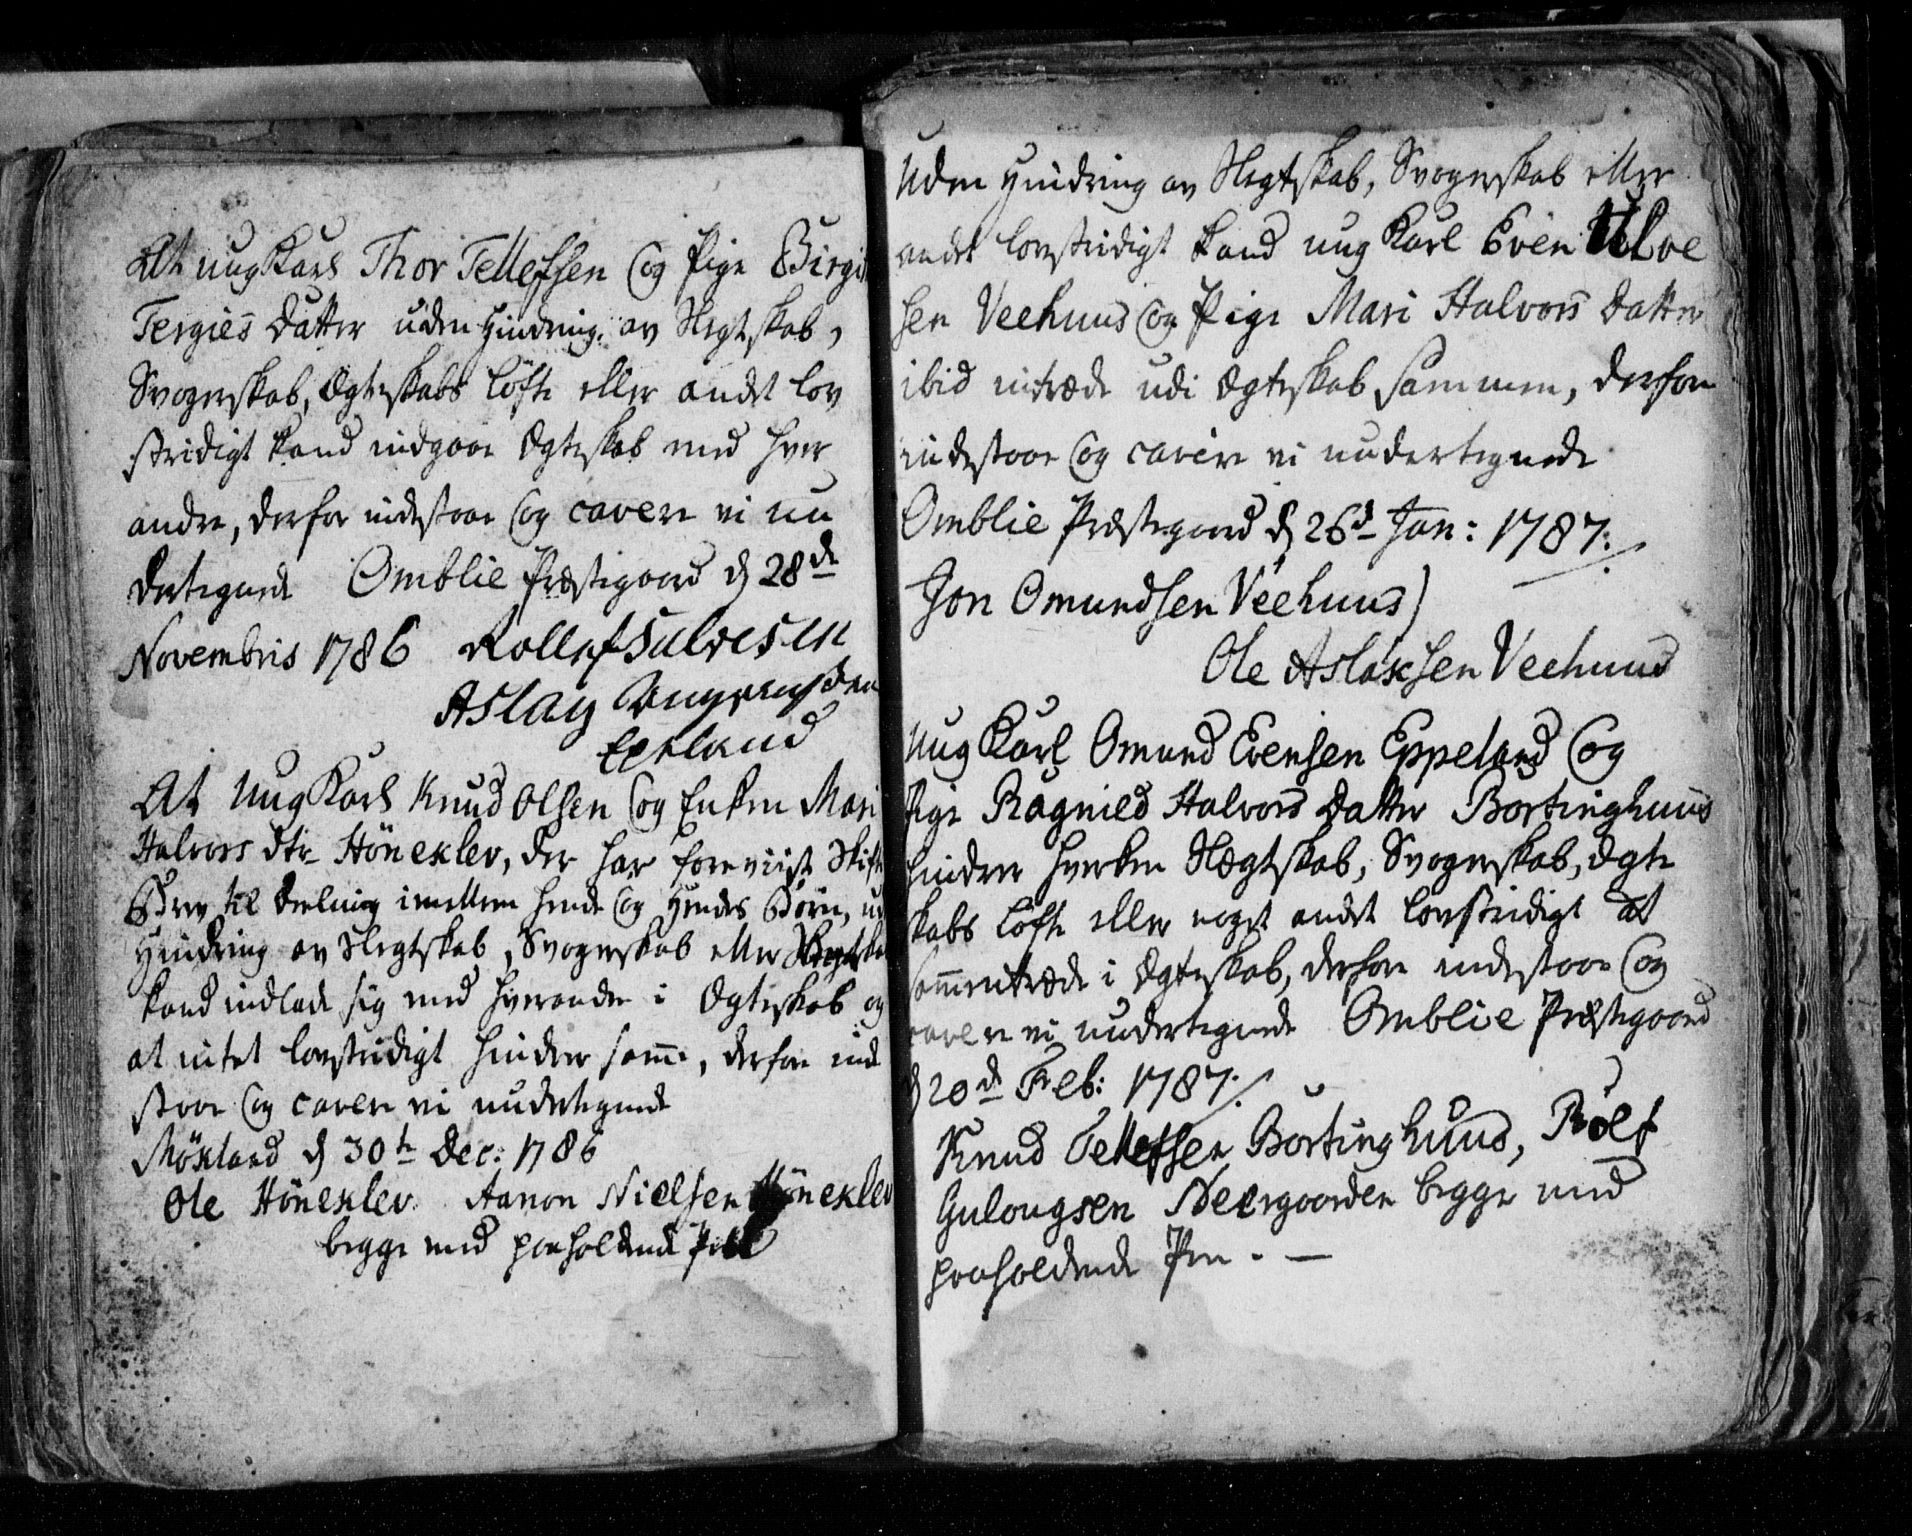 At ung Karl Thor Tellefsen og Pige Birgit
Tergies Datter uden Hindring av Slegtskab,
Svogerskab, Ægteskabs Löfte eller andet lov
stridigt kand indgaae Ægteskab med hver
andre, derfor indestaae og cavere vi un
dertegnede Omblie Præstegaard d 28de
Novembris 1786 Rollef Salvesen
Aslag
Epeland
At ung Karl Knud Olsen og Enken Mari
Halvors dtr Höneklev, der har foreviist Skifte
Brev til deeling imellem hende og Hendes Börn, ud
Hindring av Slegtskab, Svogerskab eller
kand indlade sig med hverandre i Ægteskab og
at intet lovstridigt hindrer samme, derfore inde
staae og cavere vi undertegnede
Möxland d 30te Dec: 1786
Ole Hönexlev. Aanon Nielsen Hönexlev
begge med paaholdende Pen
Uden Hindring av Slegtskab, Svogerskab eller
andet lovstridigt kand ung Karl Even Ulve
sen Veehuus og Pige Mari Halvors Datter
ibid intræde udi Ægteskab sammen, derfore
indestaae og cavere vi undertegnede
Omblie Præstegaard d 26d Jan: 1787.
Jon Omundsen Veehuus
Ole Aslaxsen Veehuus
Ung Karl Omund Evensen Eppeland og
Pige Ragnild Halvors Datter Bortinghuus
hindrer hverken Slægtskab, Svogerskab, Ægte
skabs Löfte eller noget andet lovstridigt at
sammentræde i Ægteskab, derfore indestaae og
cavere vi undertegnede Omblie Præstegaard
d 20de Feb: 1787.
Knud Tellefsen Bortinghuus, Rolf
Gulougsen Neergaarden begge med
paaholdende Pen. —